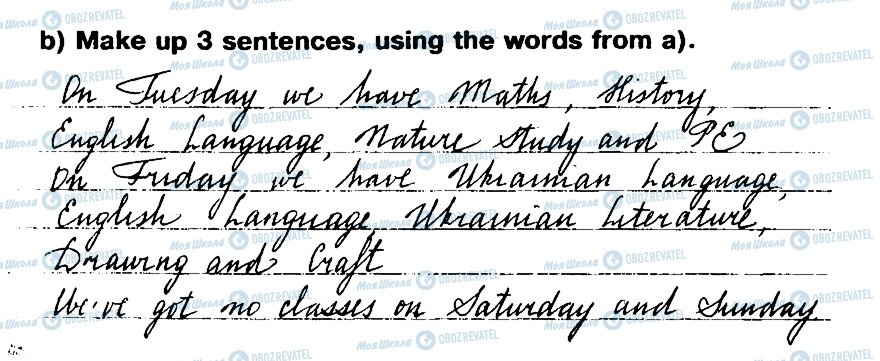 b) Make up 3 sentences, using the words from a).
On Tuesday we have Maths, History,
English Language, Nature Study and PE
On Friday we have Ukrainian Language,
English Language, Ukrainian Literature,
Drawing and Craft
We've got no classes on Saturday and Sunday.